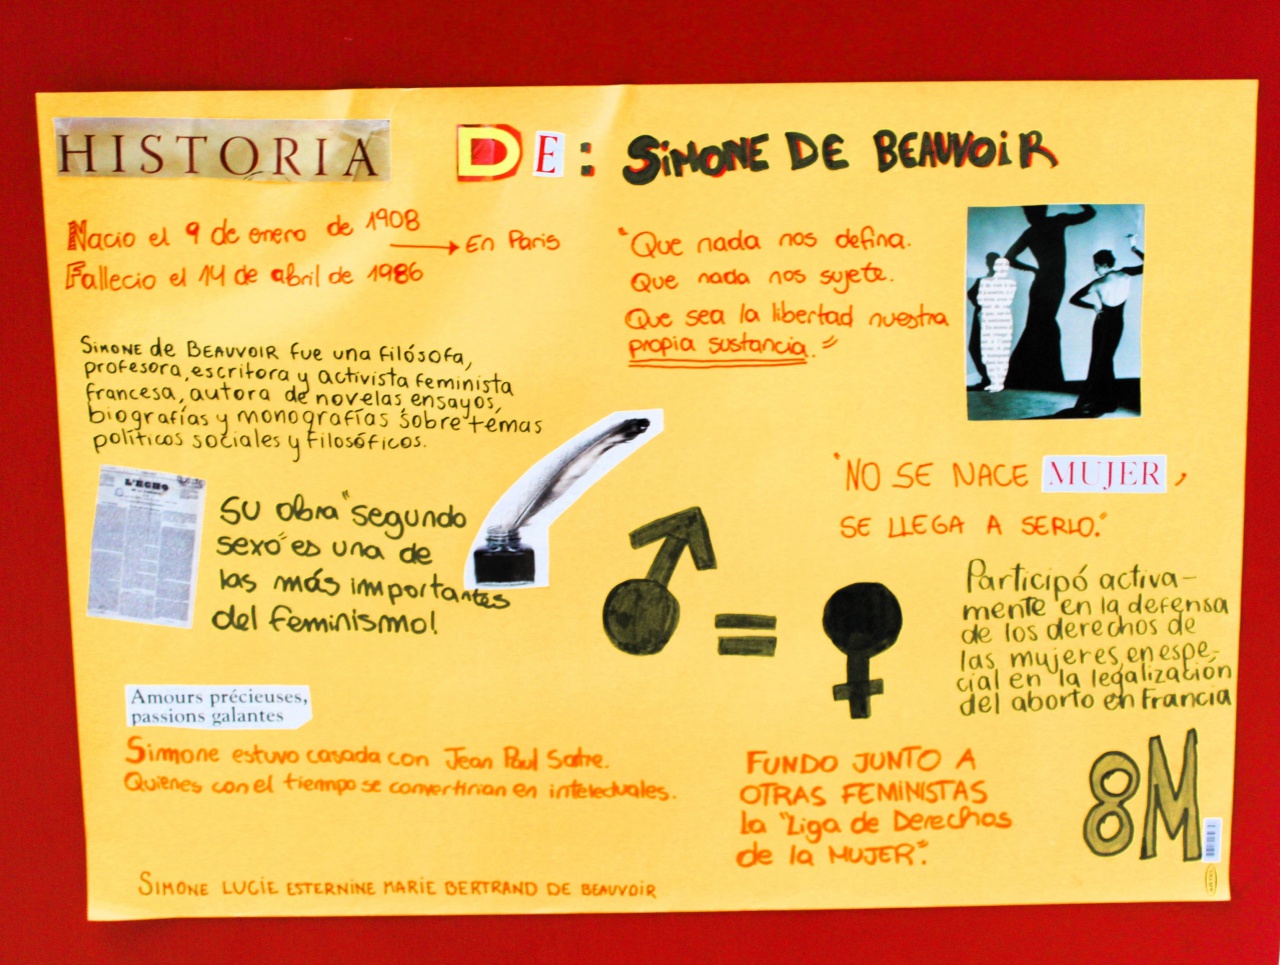 HISTORIA DE: SIMONE DE BEAUVOIR
Nacio el 9 de enero de 1908
→ En Paris
Fallecio el 14 de abril de 1986
"Que nada nos defina.
Que nada nos sujete.
Que sea la libertad nuestra
propia sustancia."
SIMONE de BEAUVOIR fue una filósofa,
profesora, escritora y activista feminista
francesa, autora de novelas ensayos,
biografías y monografías sobre temas
políticos sociales y filosóficos.
L'ECHO
Su obra "segundo
sexo" es una de
las más importantes
del feminismo!
"NO SE NACE MUJER,
SE LLEGA A SERLO."
=
Participó activa-
mente en la defensa
de los derechos de
las mujeres, en espe-
cial en la legalización
del aborto en Francia
Amours précieuses,
passions galantes
Simone estuvo casada con Jean Paul Satre.
Quienes con el tiempo se convertirian en intelectuales.
FUNDO JUNTO A
OTRAS FEMINISTAS
la "Liga de Derechos
de la MUJER".
8M
SIMONE LUCIE ESTERNINE MARIE BERTRAND DE BEAUVOIR